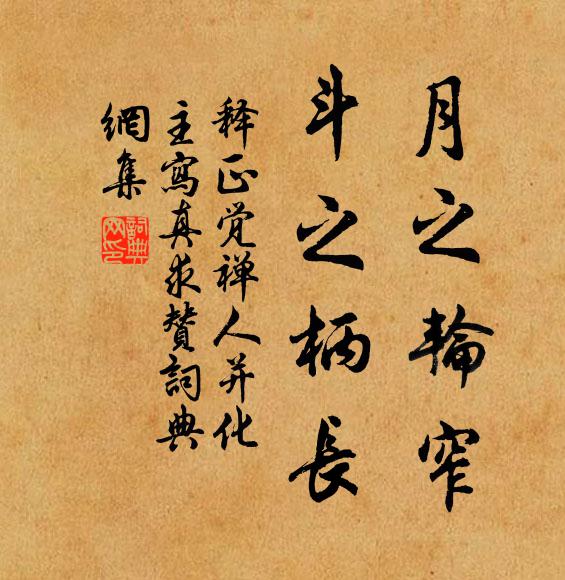 月之輪窄
斗之柄長
释正觉禅人并化
主寫真求赞詞典
網集
詞典
网印